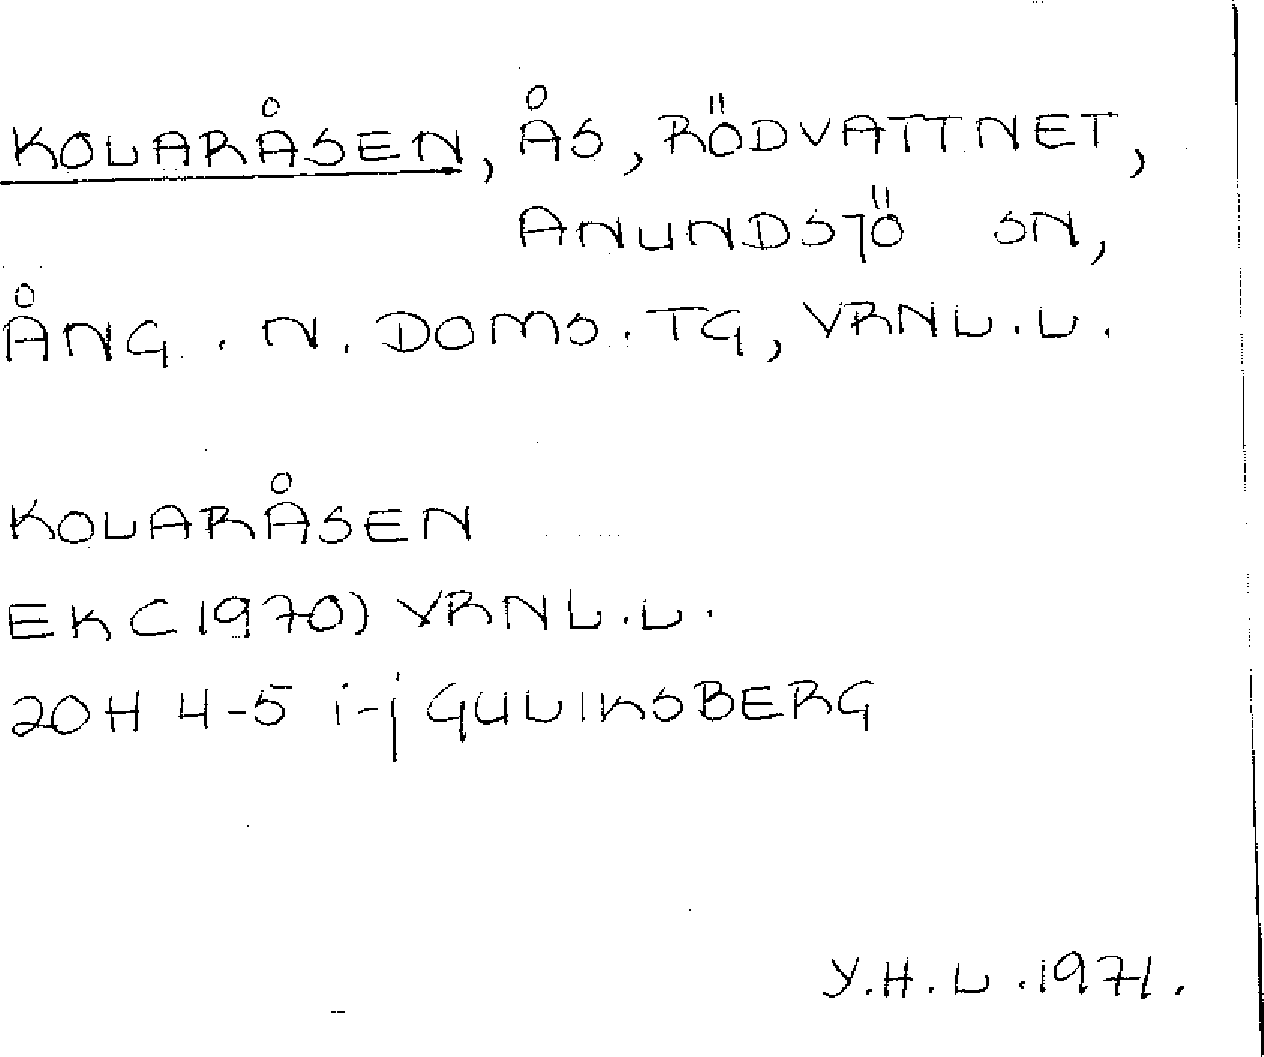 KOLARÅSEN, ÅS, RÖDVATTNET,
ANUNDSJÖ SN,
ÅNG. N. DOMS. TG, VRNL.L.
KOLARÅSEN
EK (1970) VRNL.L.
20H 4-5 i-j GULIKSBERG
Y.H.L. 1971.